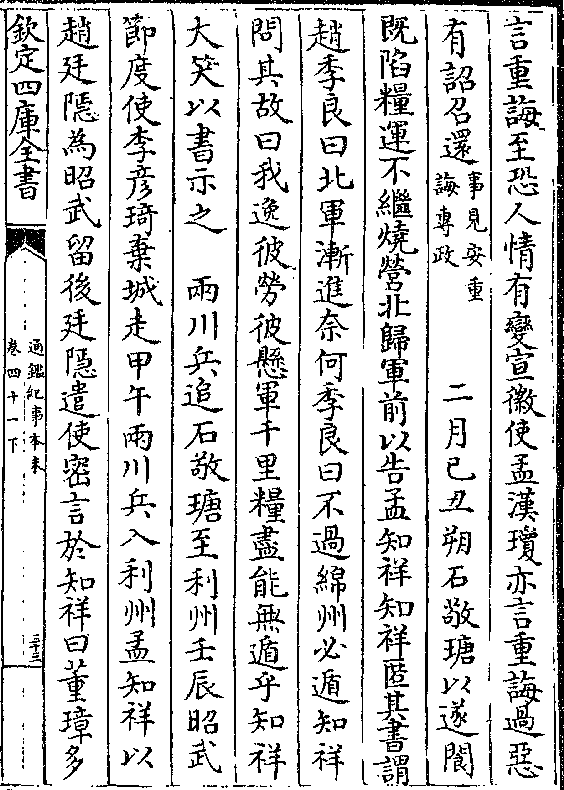 言重誨至恐人情有變宣徽使孟漢瓊亦言重誨過惡
有詔召還事見安重誨專政　二月己丑朔石敬瑭以遂閬
既陷糧運不繼燒營北歸軍前以告孟知祥知祥匿其書謂
趙季良曰北軍漸進奈何季良曰不過綿州必遁知祥
問其故曰我逸彼勞彼懸軍千里糧盡能無遁乎知祥
大笑以書示之　兩川兵追石敬瑭至利州壬辰昭武
節度使李彥琦棄城走甲午兩川兵入利州孟知祥以
趙廷隱為昭武留後廷隱遣使密言於知祥曰董璋多
欽定四庫全書
通鑑紀事本末
卷四十一下
三十三